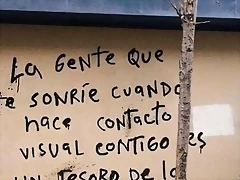 LA GENTE QUE
TE SONRÍE CUANDO
HACE CONTACTO
VISUAL CONTIGO ES
UN TESORO DE LO